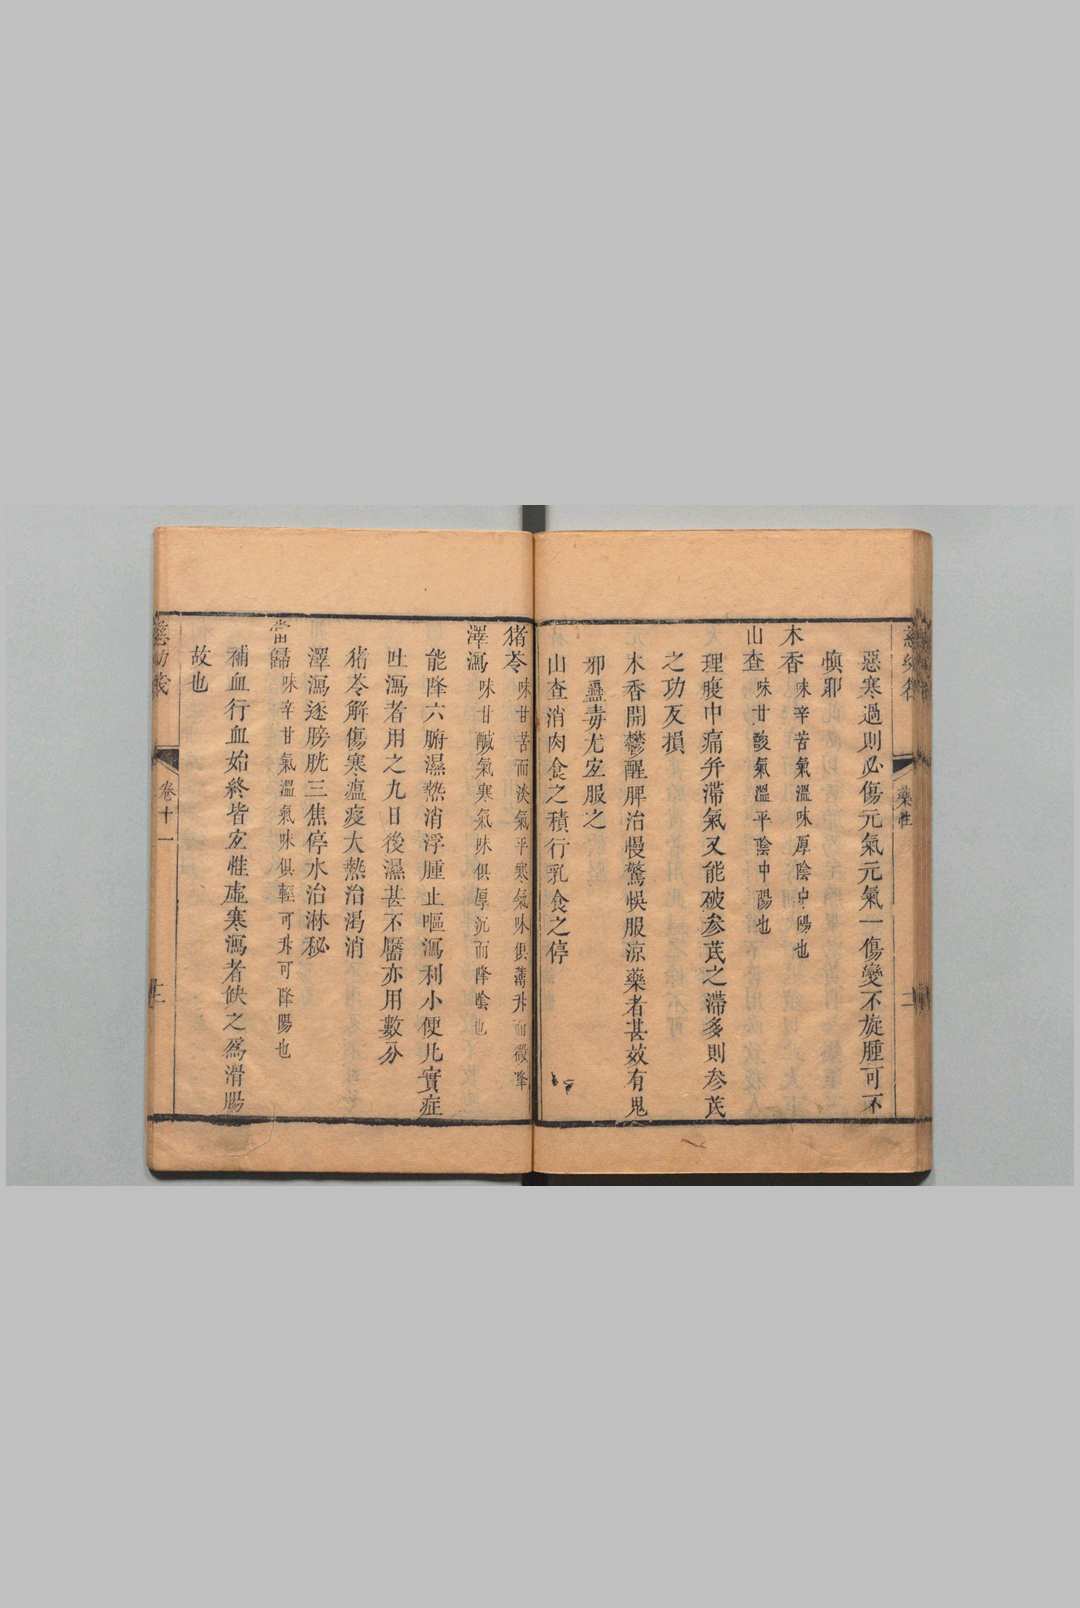 藥性
惡寒過則必傷元氣元氣一傷變不旋踵可不
愼耶
木香味辛苦氣溫味厚陰中陽也
山查味甘酸氣溫平陰中陽也
理腹中痛并滯氣又能破參芪之滯多則參芪
之功反損
木香開鬱醒脾治慢驚悞服涼藥者甚效有鬼
邪蠱毒尤宜服之
山查消肉食之積行乳食之停
猪苓味甘苦而淡氣平寒氣味俱薄升而微降
澤瀉味甘鹹氣寒氣味俱厚沉而降陰也
能降六腑濕熱消浮腫止嘔瀉利小便凡實症
吐瀉者用之九日後濕甚不靨亦用數分
猪苓解傷寒瘟疫大熱治渴消
澤瀉逐膀胱三焦停水治淋秘
當歸味辛甘氣溫氣味俱輕可升可降陽也
補血行血始終皆宜惟虛寒瀉者缺之爲滑腸
故也
慈幼筏
卷十一